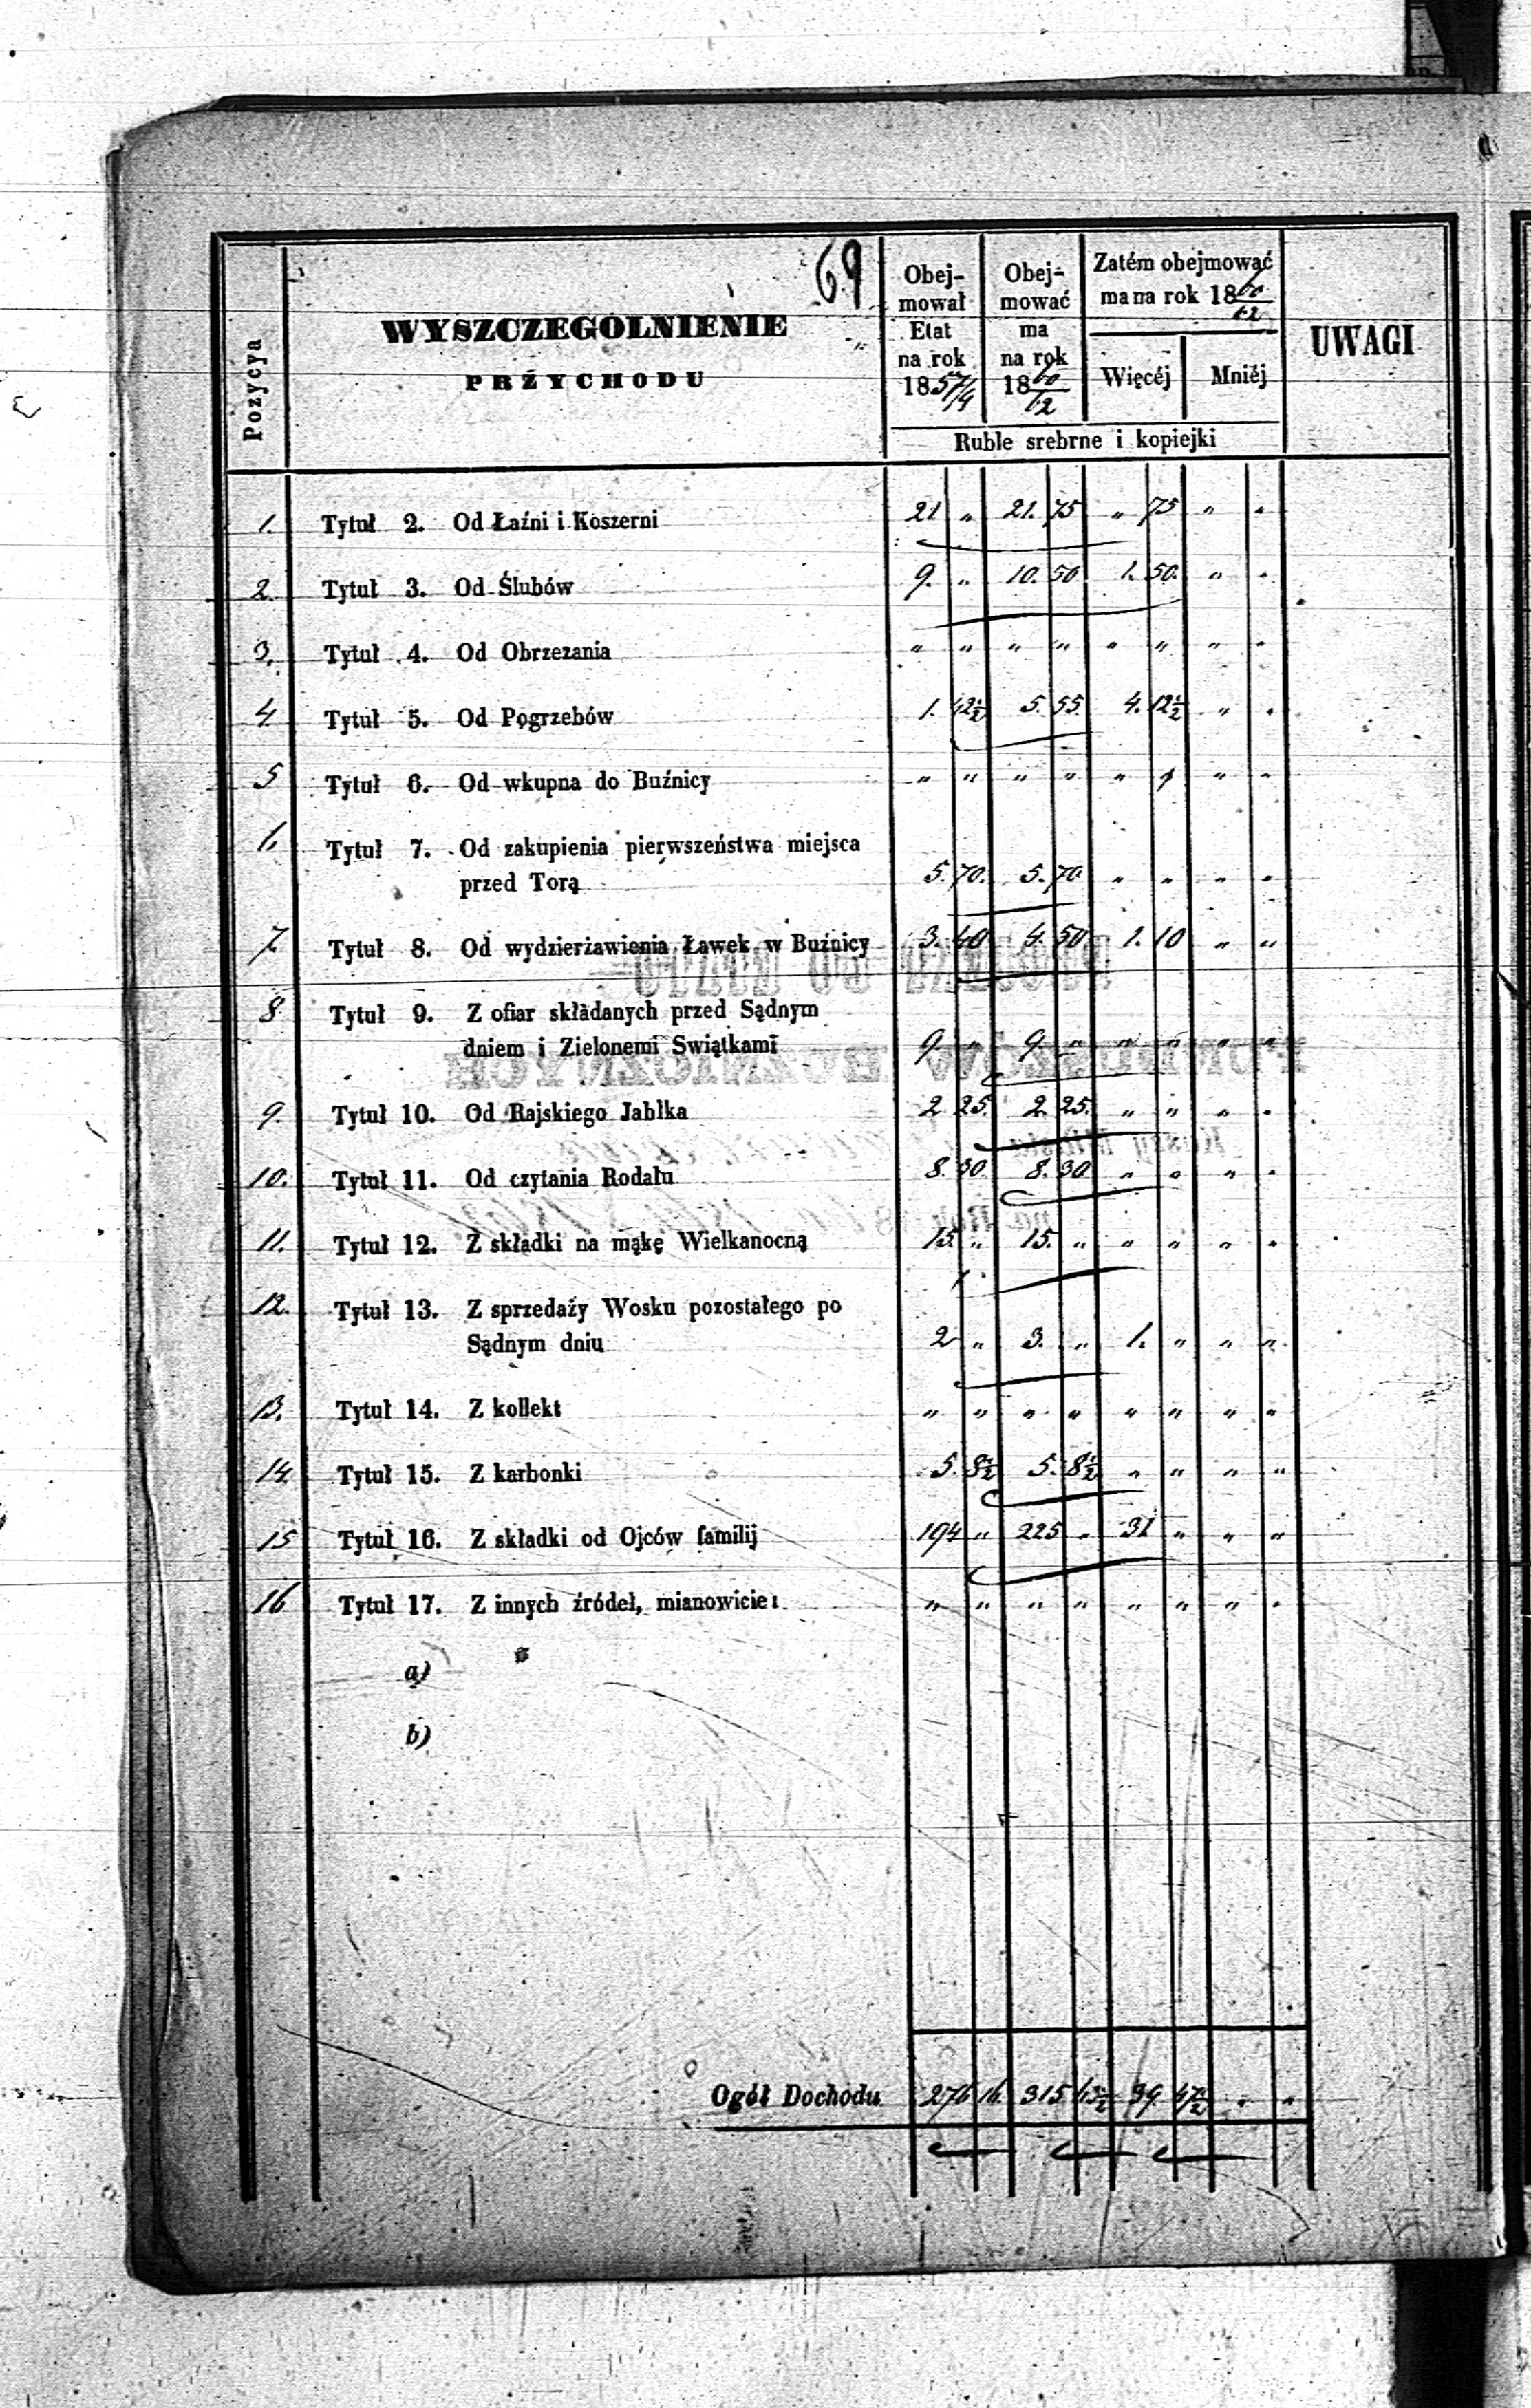 69
Pozycya
WYSZCZEGOLNIENIE
PRZYCHODU
Obej-
mował
Etat
na rok
1857/9
Obej-
mować
ma
na rok
1860/62
Zatém obejmować
ma na rok 1860/62
Więcéj Mniéj
Ruble srebrne i kopiejki
UWAGI
1. Tytuł 2. Od Łaźni i Koszerni 21 „ 21. 75 „ 75 „ „
2. Tytuł 3. Od Ślubów 9. „ 10. 50 1. 50. „ „
3. Tytuł 4. Od Obrzezania „ „ „ „ „ „ „ „
4 Tytuł 5. Od Pogrzebów 1. 42½ 5. 55 4. 12½ „ „
5 Tytuł 6. Od wkupna do Buźnicy „ „ „ „ „ „ „ „
6. Tytuł 7. Od zakupienia pierwszeństwa miejsca
przed Torą 5. 70. 5. 70 „ „ „ „
7. Tytuł 8. Od wydzierżawienia Ławek w Buźnicy 3. 40 4. 50 1. 10 „ „
8 Tytuł 9. Z ofiar składanych przed Sądnym
dniem i Zielonemi Swiątkami 9. „ 9. „ „ „ „ „
9. Tytuł 10. Od Rajskiego Jabłka 2 25. 2. 25. „ „ „ „
10. Tytuł 11. Od czytania Rodału 8. 30. 8. 30 „ „ „ „
11. Tytuł 12. Z składki na mąkę Wielkanocną 15. „ 15. „ „ „ „ „
12. Tytuł 13. Z sprzedaży Wosku pozostałego po
Sądnym dniu 2 „ 3. „ 1. „ „ „
13. Tytuł 14. Z kollekt „ „ „ „ „ „ „ „
14. Tytuł 15. Z karbonki 5. 8½ 5. 8½ „ „ „ „
15 Tytuł 16. Z składki od Ojców familij 194 „ 225 „ 31 „ „ „
16 Tytuł 17. Z innych źródeł, mianowicie: „ „ „ „ „ „ „ „
a)
b)
Ogół Dochodu 276 16. 315 63½ 39. 47½ „ „